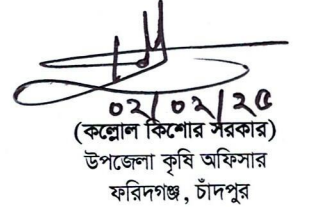 ০২/০২/২৫
(কল্লোল কিশোর সরকার)
উপজেলা কৃষি অফিসার
ফরিদগঞ্জ, চাঁদপুর